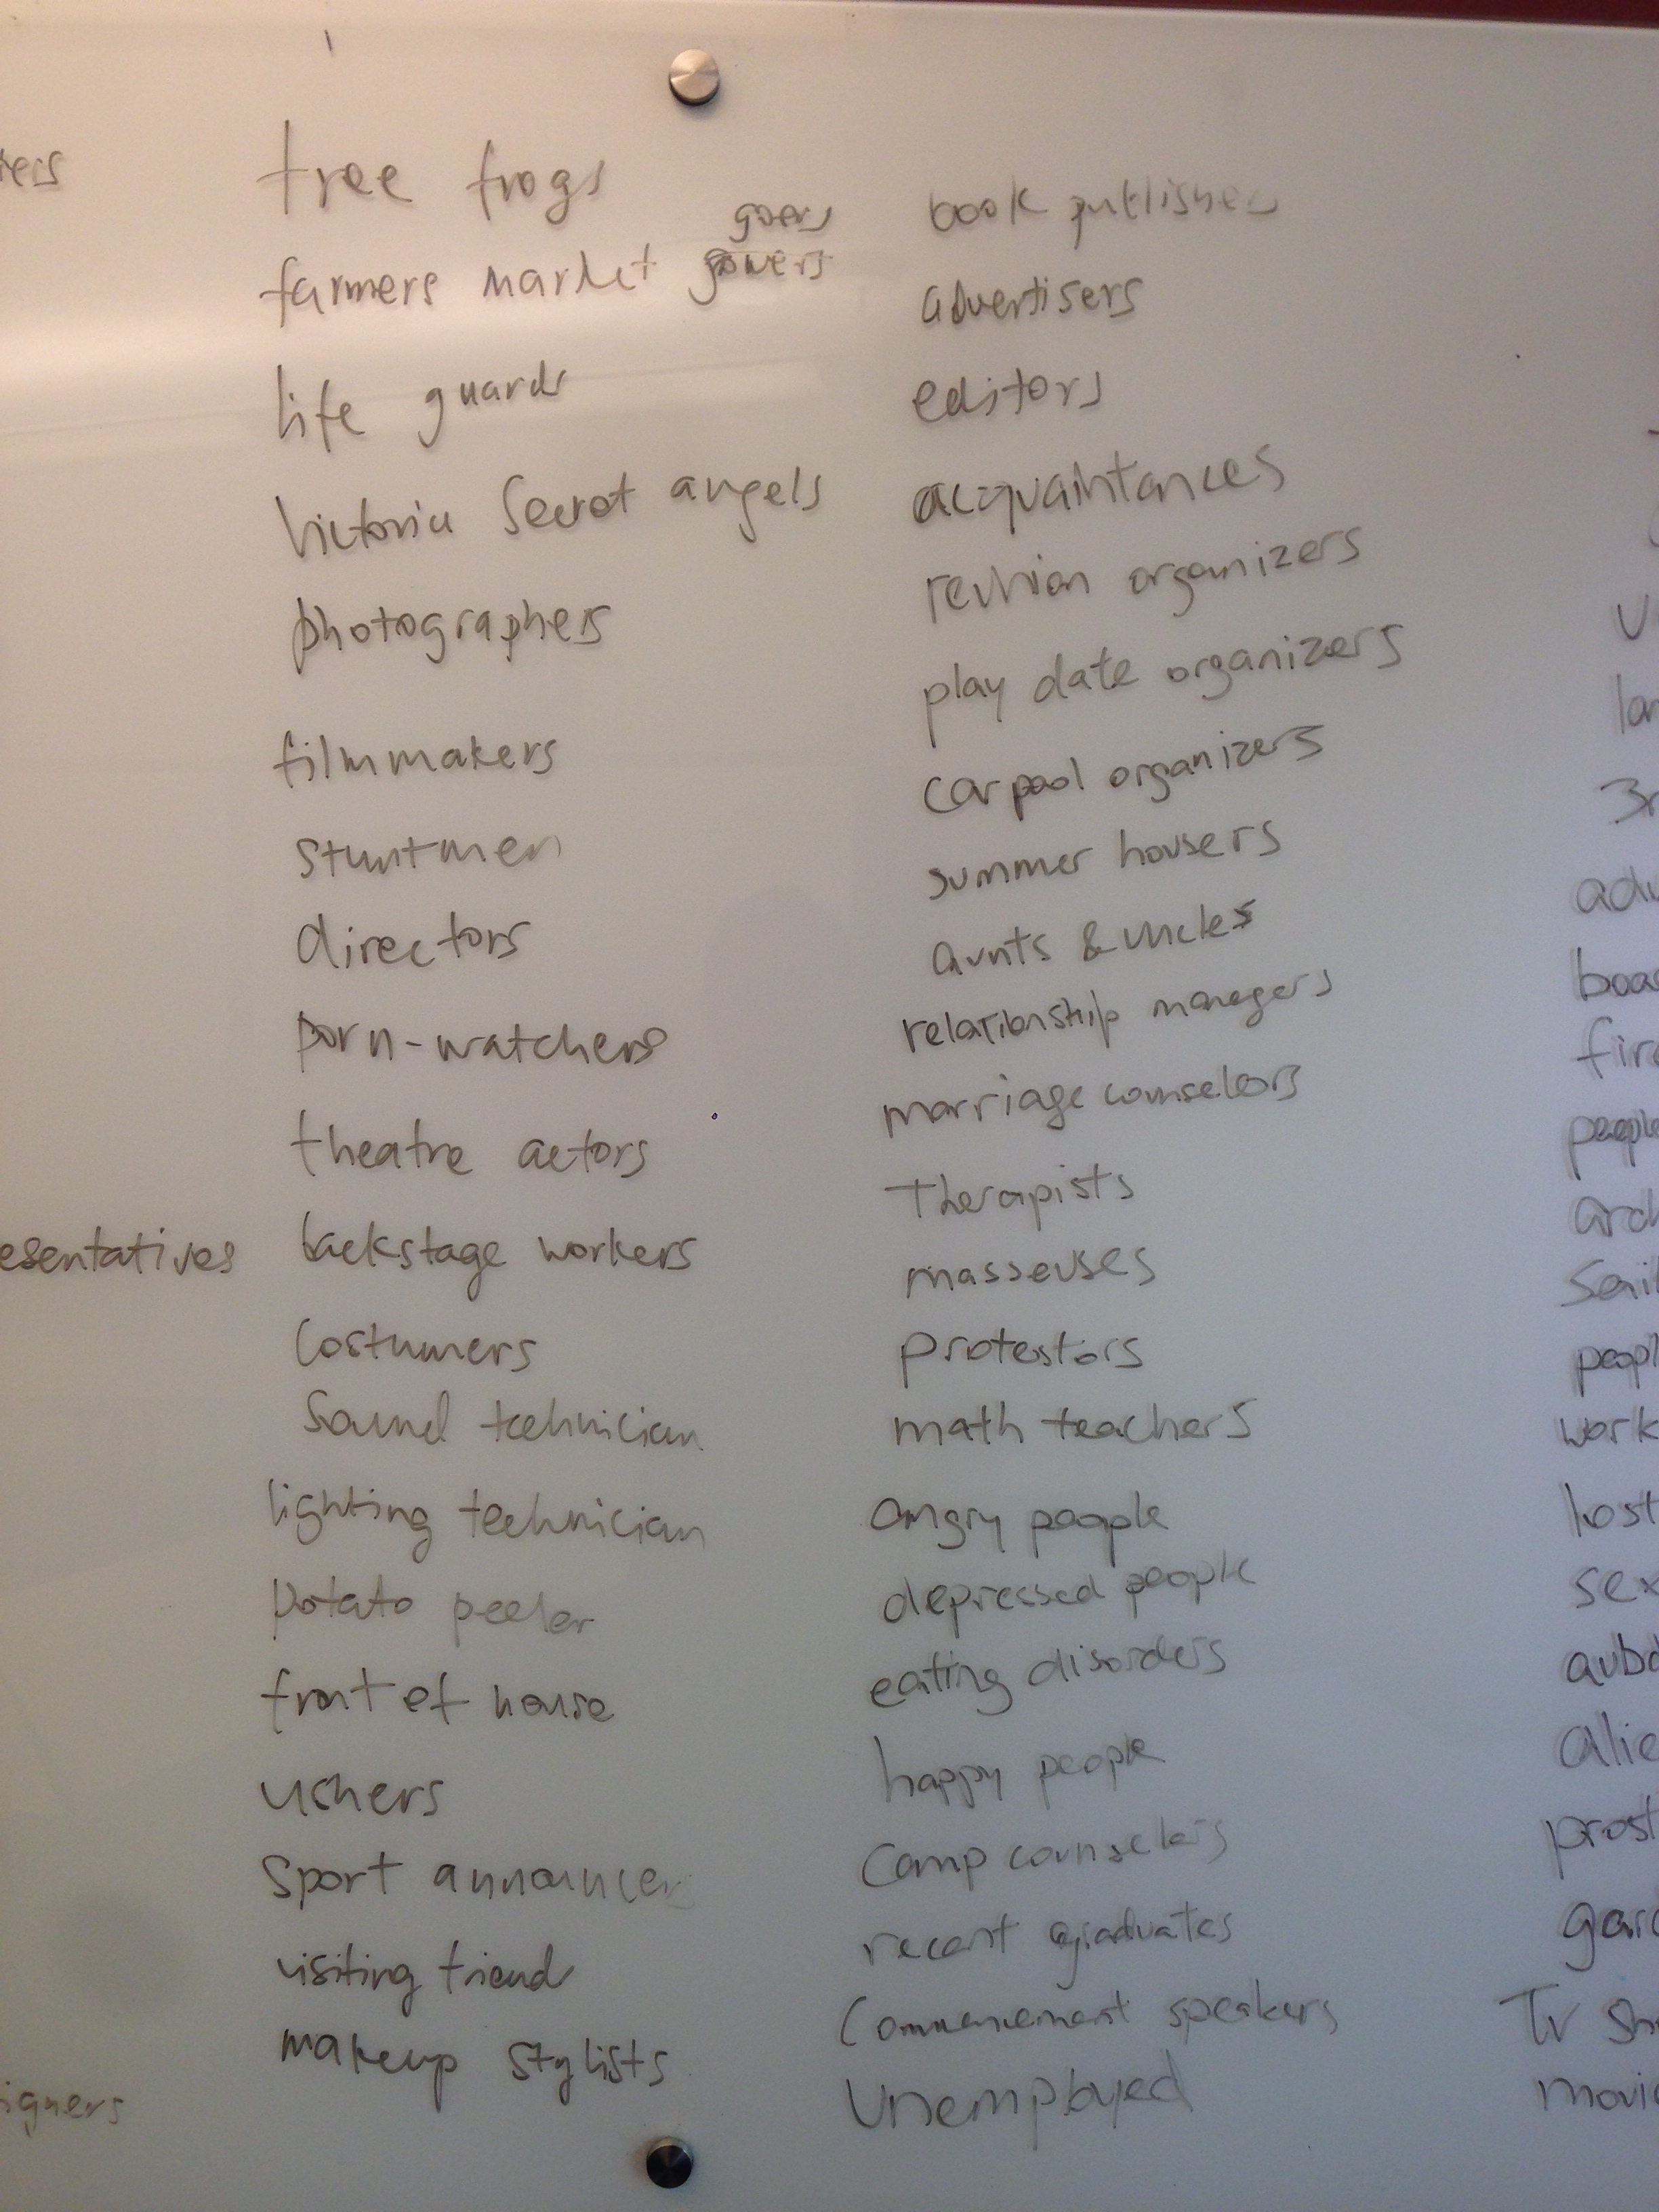 tree frogs
goers
farmers market gowers
life guards
Victoria Secret angels
photographers
filmmakers
stuntmen
directors
porn-watchers
theatre actors
backstage workers
costumers
Sound technician
lighting technician
potato peeler
front of house
ushers
sport announcer
visiting friend
makeup stylists
book publisher
advertisers
editors
acquaintances
reunion organizers
play date organizers
carpool organizers
summer housers
aunts & uncles
relationship managers
marriage counselors
Therapists
masseuses
protestors
math teachers
angry people
depressed people
eating disorders
happy people
camp counselors
recent graduates
Commencement speakers
Unemployed
esentatives
igners
people
work
lost
TV